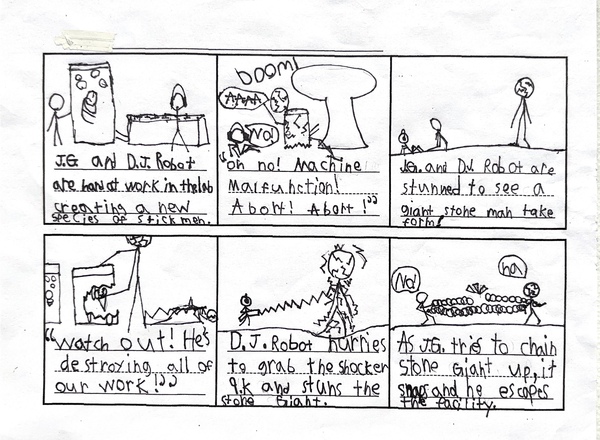 J.G and D.J. Robot
are hard at work in the lab
creating a new
species of stickman.
BOOM!
AAAA
No!
"Oh no! Machine
Malfunction!
Abort! Abort!"
J.G. and D.J. Robot are
stunned to see a
giant stone man take
form!
"Watch out! He's
destroying all of
our work!"
D.J. Robot hurries
to grab the shocker
9.k and stuns the
stone Giant.
No!
ha
As J.G. tries to chain
stone Giant up, it
snaps and he escapes
the facility.